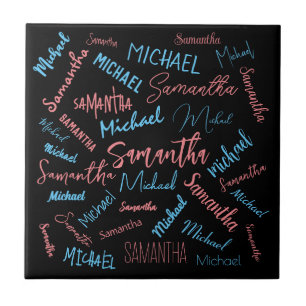 Samantha
Michael
Samantha
MICHAEL
Michael
Samantha
MICHAEL
Samantha
SAMANTHA
Michael
Michael
SAMANTHA
Michael
Samantha
Michael
michael
Samantha
Michael
Samantha
Michael
Samantha
Michael
Samantha
Michael
Samantha
Michael
Samantha
Michael
Samantha
SAMANTHA
MICHAEL
Michael